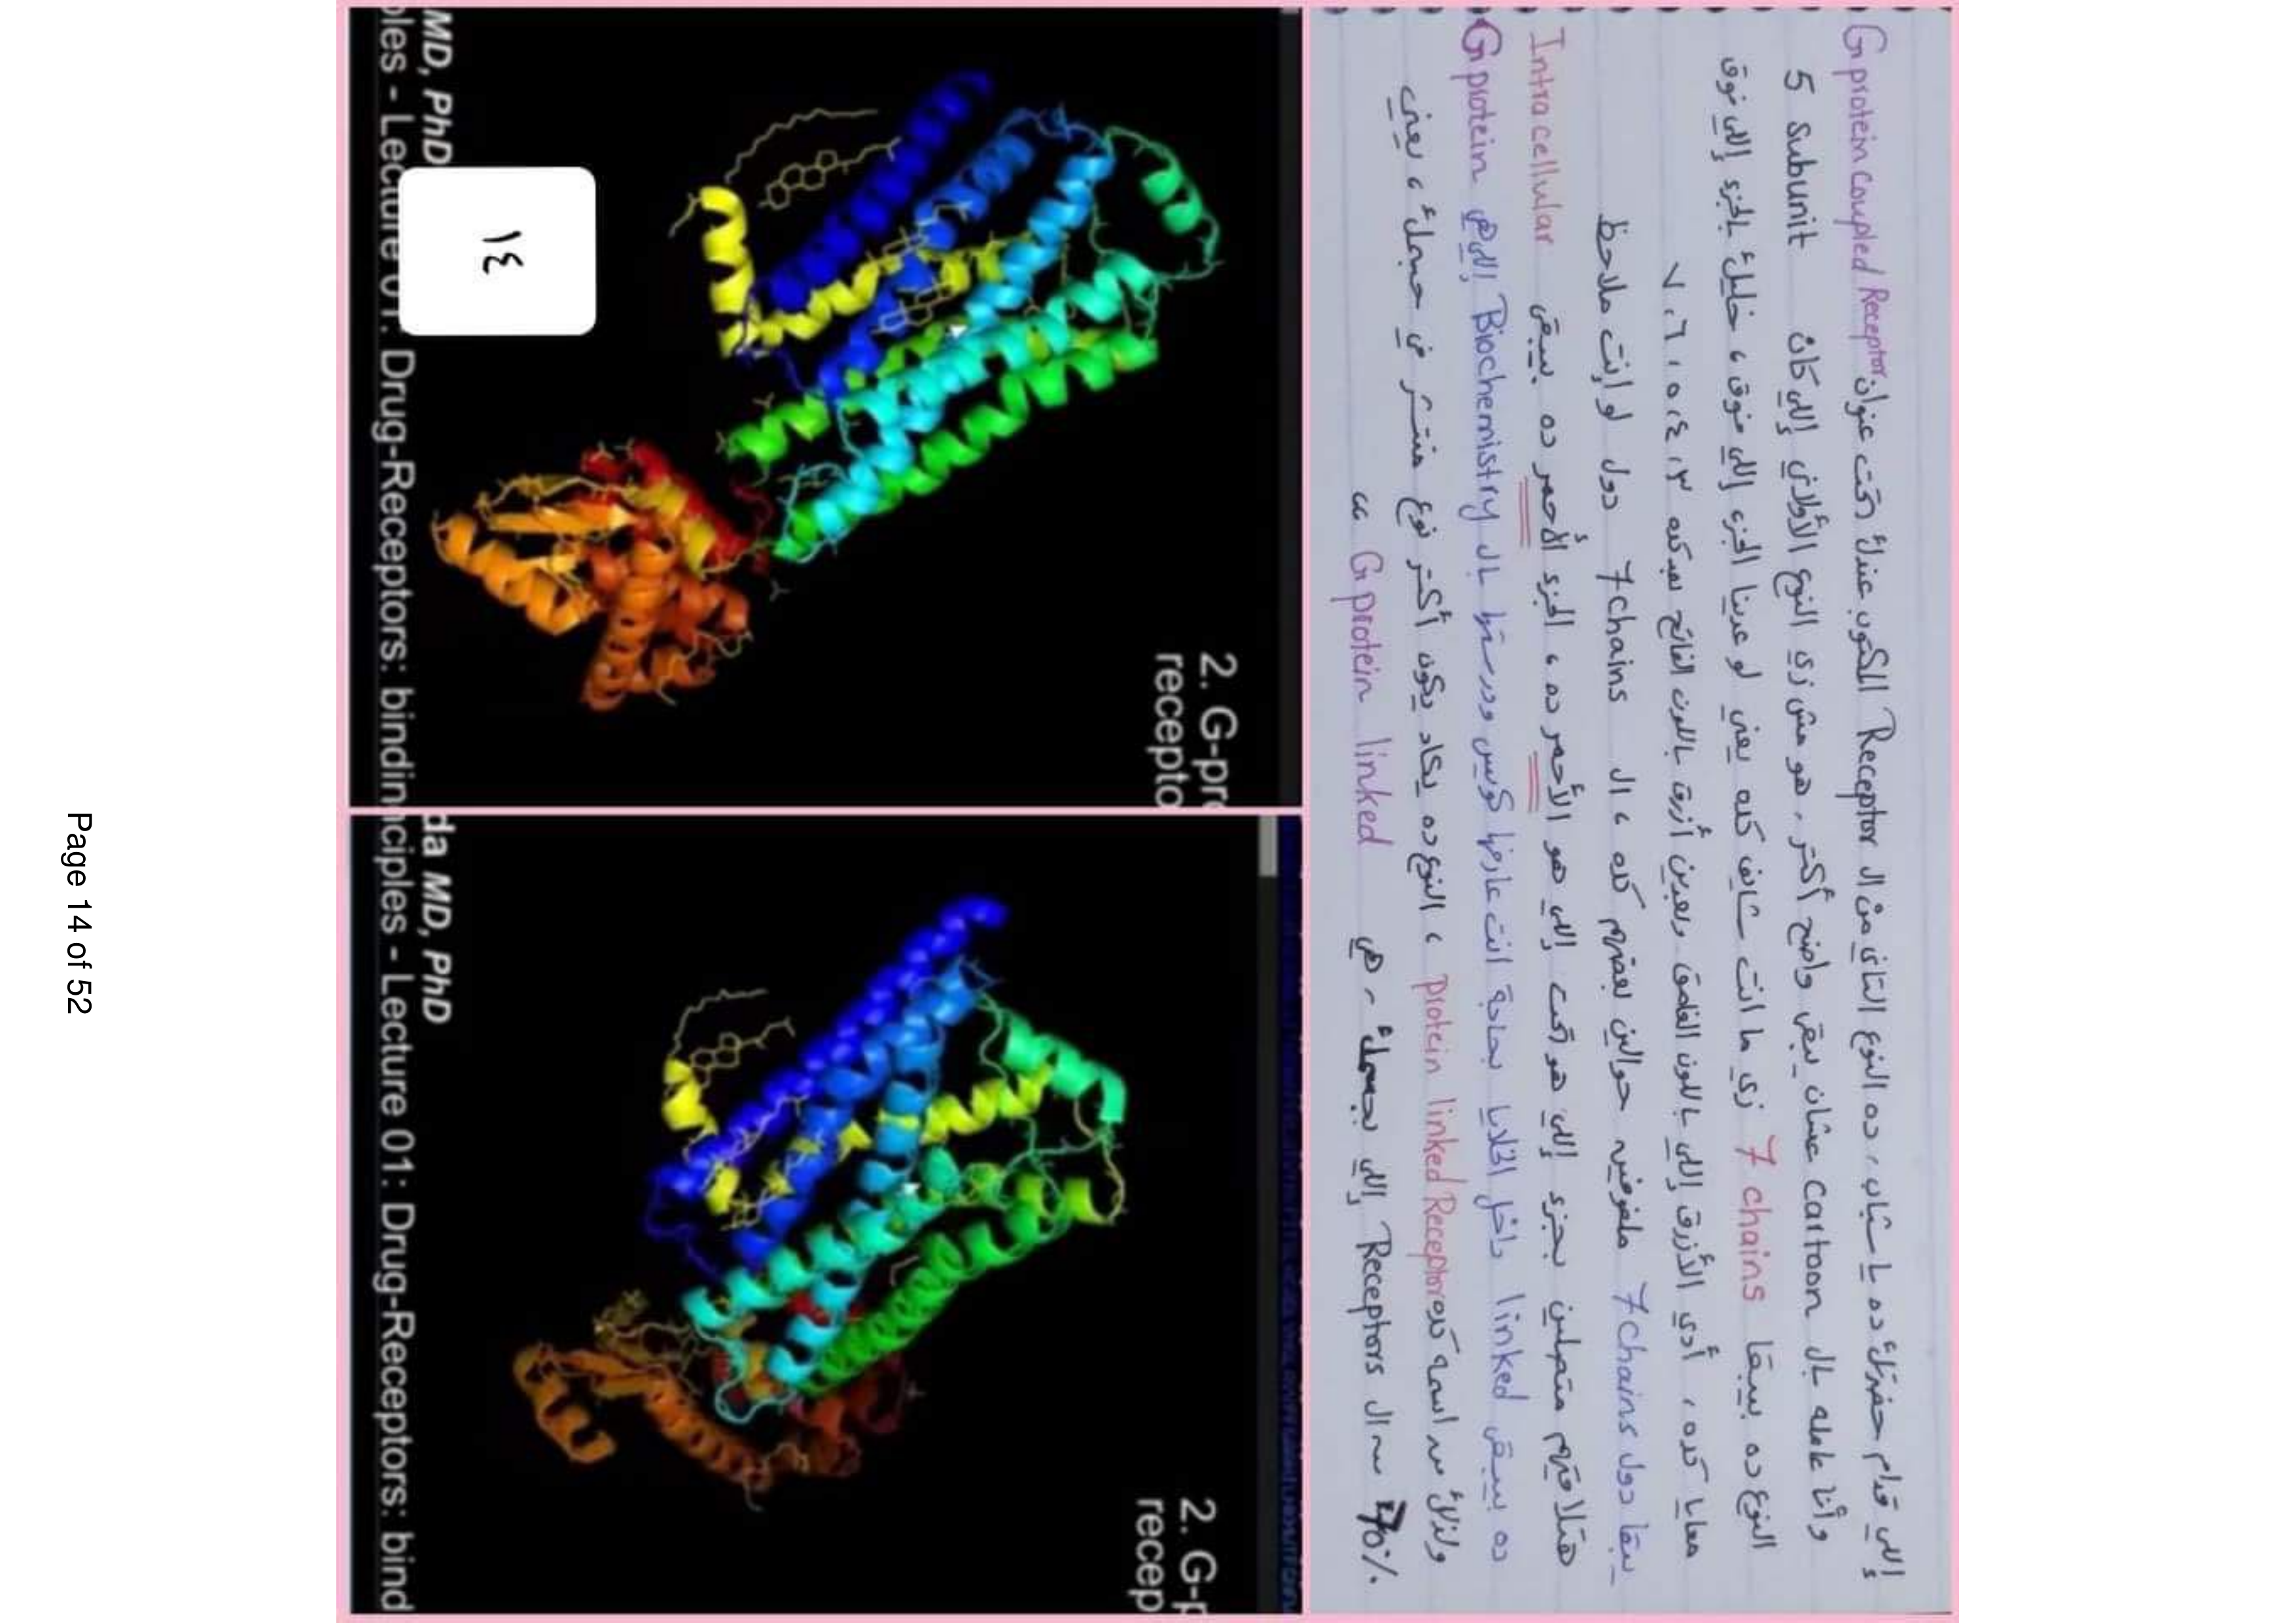 إللي قدام حضرتك ده يا شباب، ده النوع التاني من ال Receptor المكتوب عندك تحت عنوان G protein coupled Receptor
وأنا عامله بال Cartoon عشان يبقى واضح أكتر، هو مش زي النوع الأولاني إللي كان 5 Subunit
النوع ده بيبقا 7 chains زي ما انت شايف كده يعني لو عدينا الجزء إللي فوق، خليك بالجزء إللي فوق
معايا كده، أدي الأزرق إللي باللون الغامق وبعدين أزرق باللون الفاتح بعد كده ٣، ٤، ٥، ٦، ٧
يبقا دول 7 chains ملفوفين حوالين بعضهم كده، ال 7 chains دول لو إنت ملاحظ
هتلاقيهم متصلين بجزء إللي هو تحت إللي هو الأحمر ده، الجزء الأحمر ده بيبقى Intracellular
ده بيبقى linked داخل الخلايا بحاجة انت عارفها كويس ودرستها بال Biochemistry إللي هي G protein
ولذلك اسمه كده protein linked Receptor، النوع ده يكاد يكون أكتر نوع منتشر في جسمك، يعني
70% من ال Receptors إللي بجسمك هي G protein linked
2. G-pr
recepto
MD, PhD
ples - Lecture 01: Drug-Receptors: bindin
١٤
2. G-p
recep
da MD, PhD
nciples - Lecture 01: Drug-Receptors: bind
Page 14 of 52